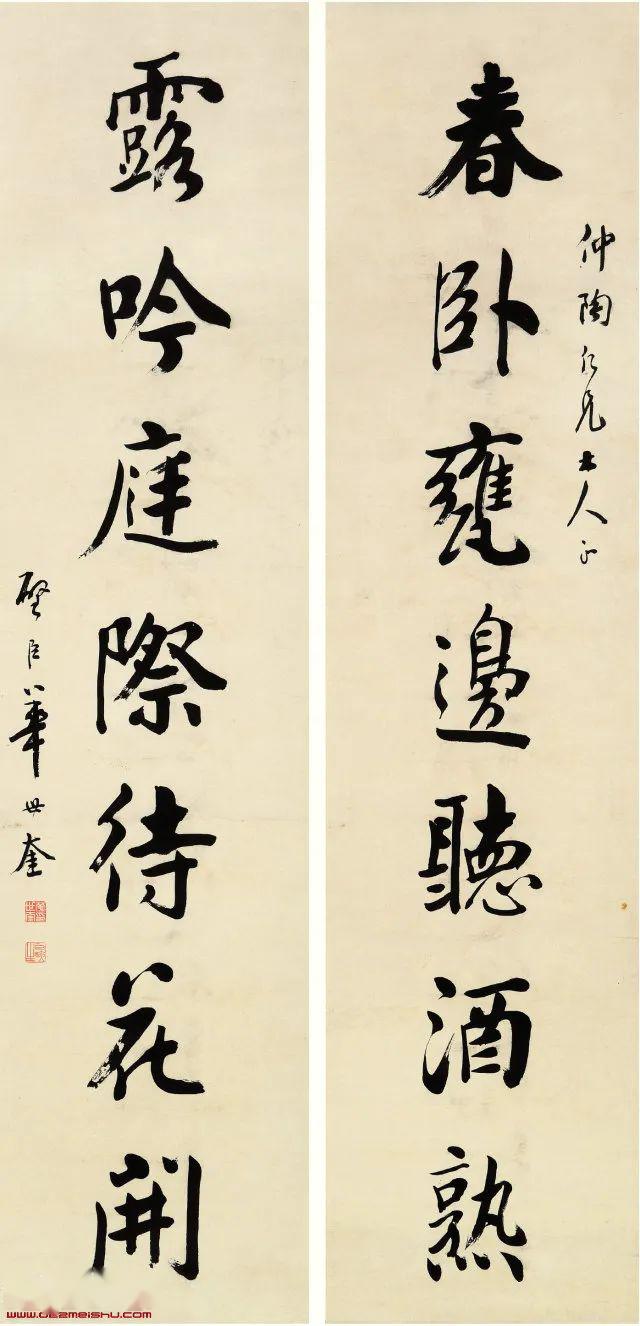 春卧甕邊聽酒熟
仲陶仁兄大人正
露吟庭際待花開
璧臣華世奎
www.dezmeishu.com